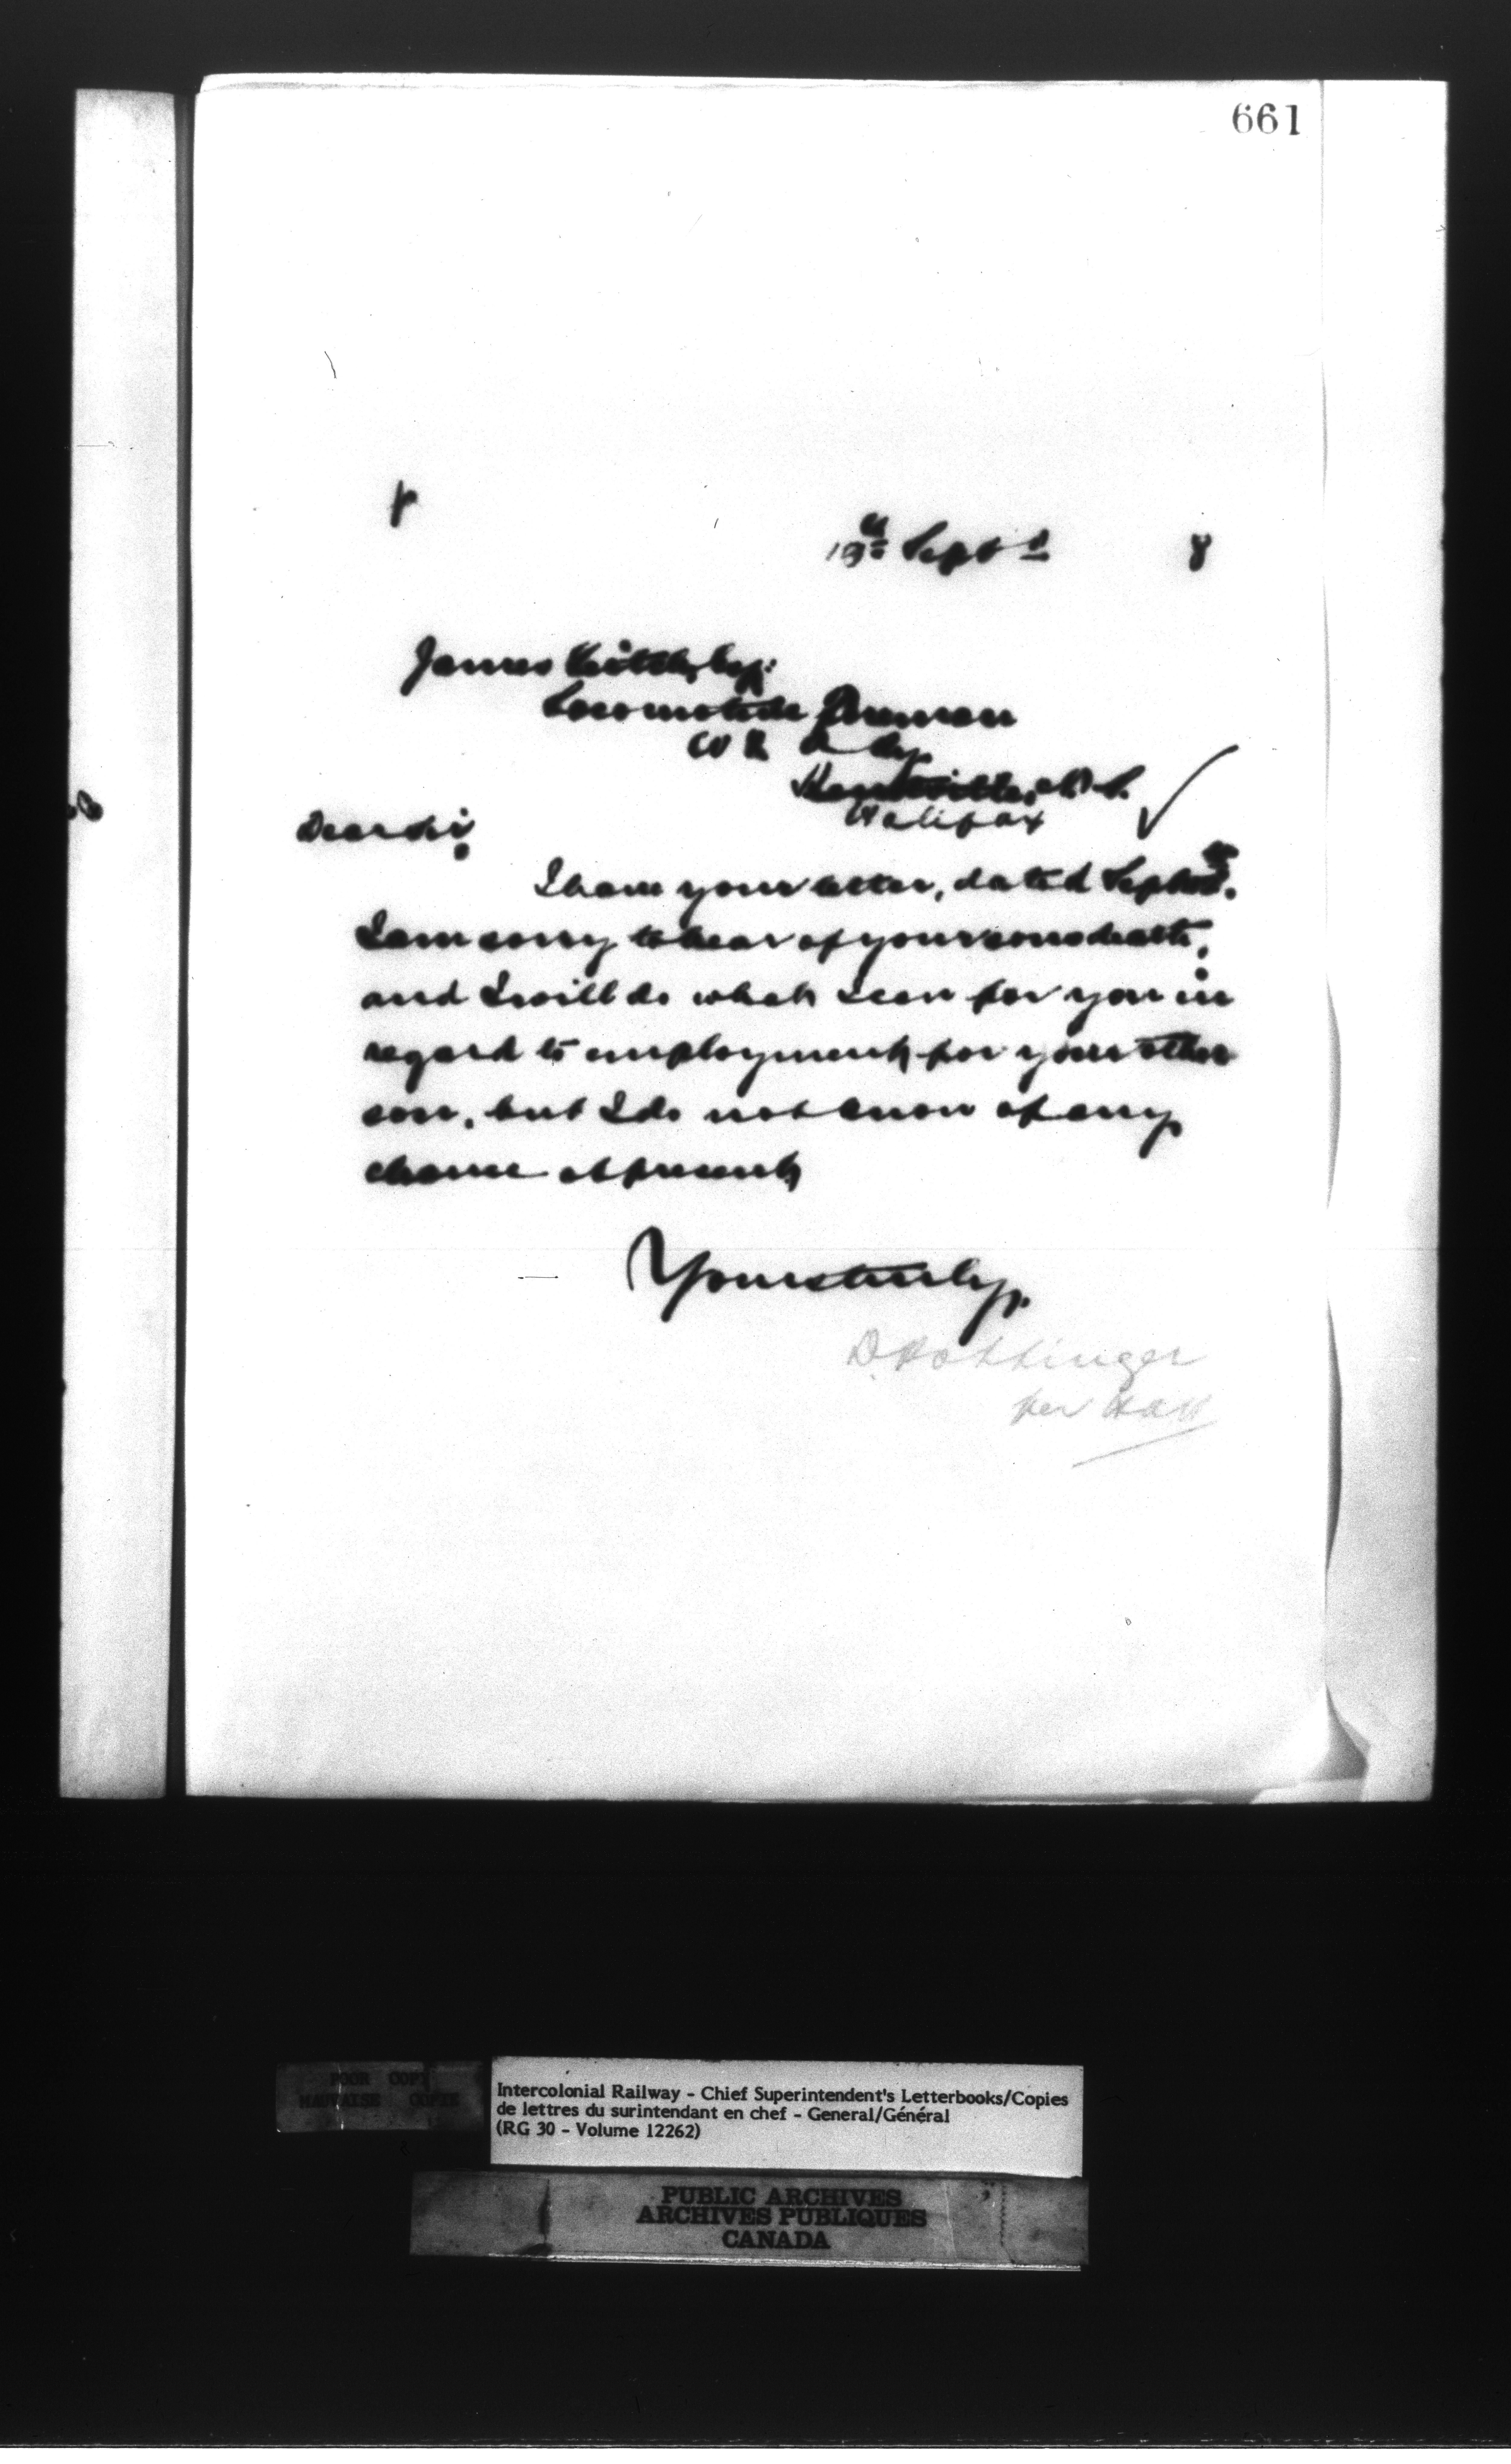 661
19th Sept
8
James
Locomotive Foreman
W & A Ry.
Kentville, N.S.
Halifax
Dear Sir,
I have your letter, dated Sept
I am sorry to hear of your sons death,
and I will do what I can for you in
regard to employment for your other
son, but I do not know of any
chance at present,
Yours truly,
D. Pottinger
per
POOR COPY
MAUVAISE COPIE
Intercolonial Railway - Chief Superintendent's Letterbooks/Copies
de lettres du surintendant en chef - General/Général
(RG 30 - Volume 12262)
PUBLIC ARCHIVES
ARCHIVES PUBLIQUES
CANADA